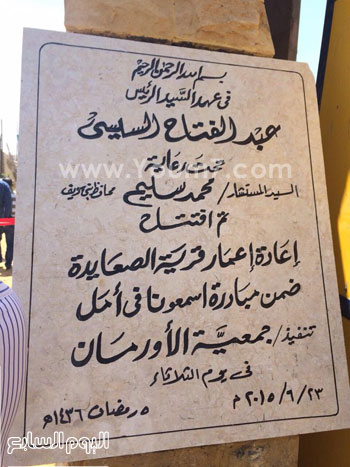 بسم الله الرحمن الرحيم
فى عهد السيد الرئيس
عبد الفتاح السيسى
تحت رعاية
السيد المستشار/ محمد سليم محافظ بنى سويف
تم افتتاح
إعادة إعمار قرية الصعايدة
ضمن مبادرة اسمعونا فى أمل
تنفيذ/ جمعية الأورمان
فى يوم الثلاثاء
٢٣/٦/٢٠١٥م ٥ رمضان ١٤٣٦هـ
اليوم السابع